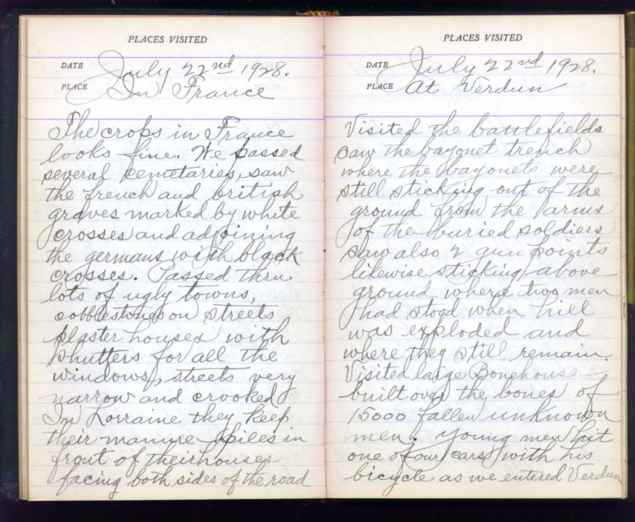 PLACES VISITED
DATE July 22nd 1928.
PLACE In France
The crops in France
looks fine. We passed
several cemetaries, saw
the french and british
graves marked by white
crosses and adjoining
the germans with black
crosses. Passed thru
lots of ugly towns,
cobblestones on streets
plaster houses with
shutters for all the
windows, streets very
narrow and crooked
In Lorraine they keep
their manure piles in
front of their houses
facing both sides of the road
PLACES VISITED
DATE July 22nd 1928.
PLACE At Verdun
Visited the battlefields
saw the bayonet trench
where the bayonets were
still sticking out of the
ground from the arms
of the buried soldiers
Saw also 2 gun points
likewise sticking above
ground where two men
had stood when hill
was exploded and
where they still remain.
Visited large Bonehouse
built over the bones of
15000 fallen unknown
men. Young man hit
one of our cars with his
bicycle as we entered Verdun